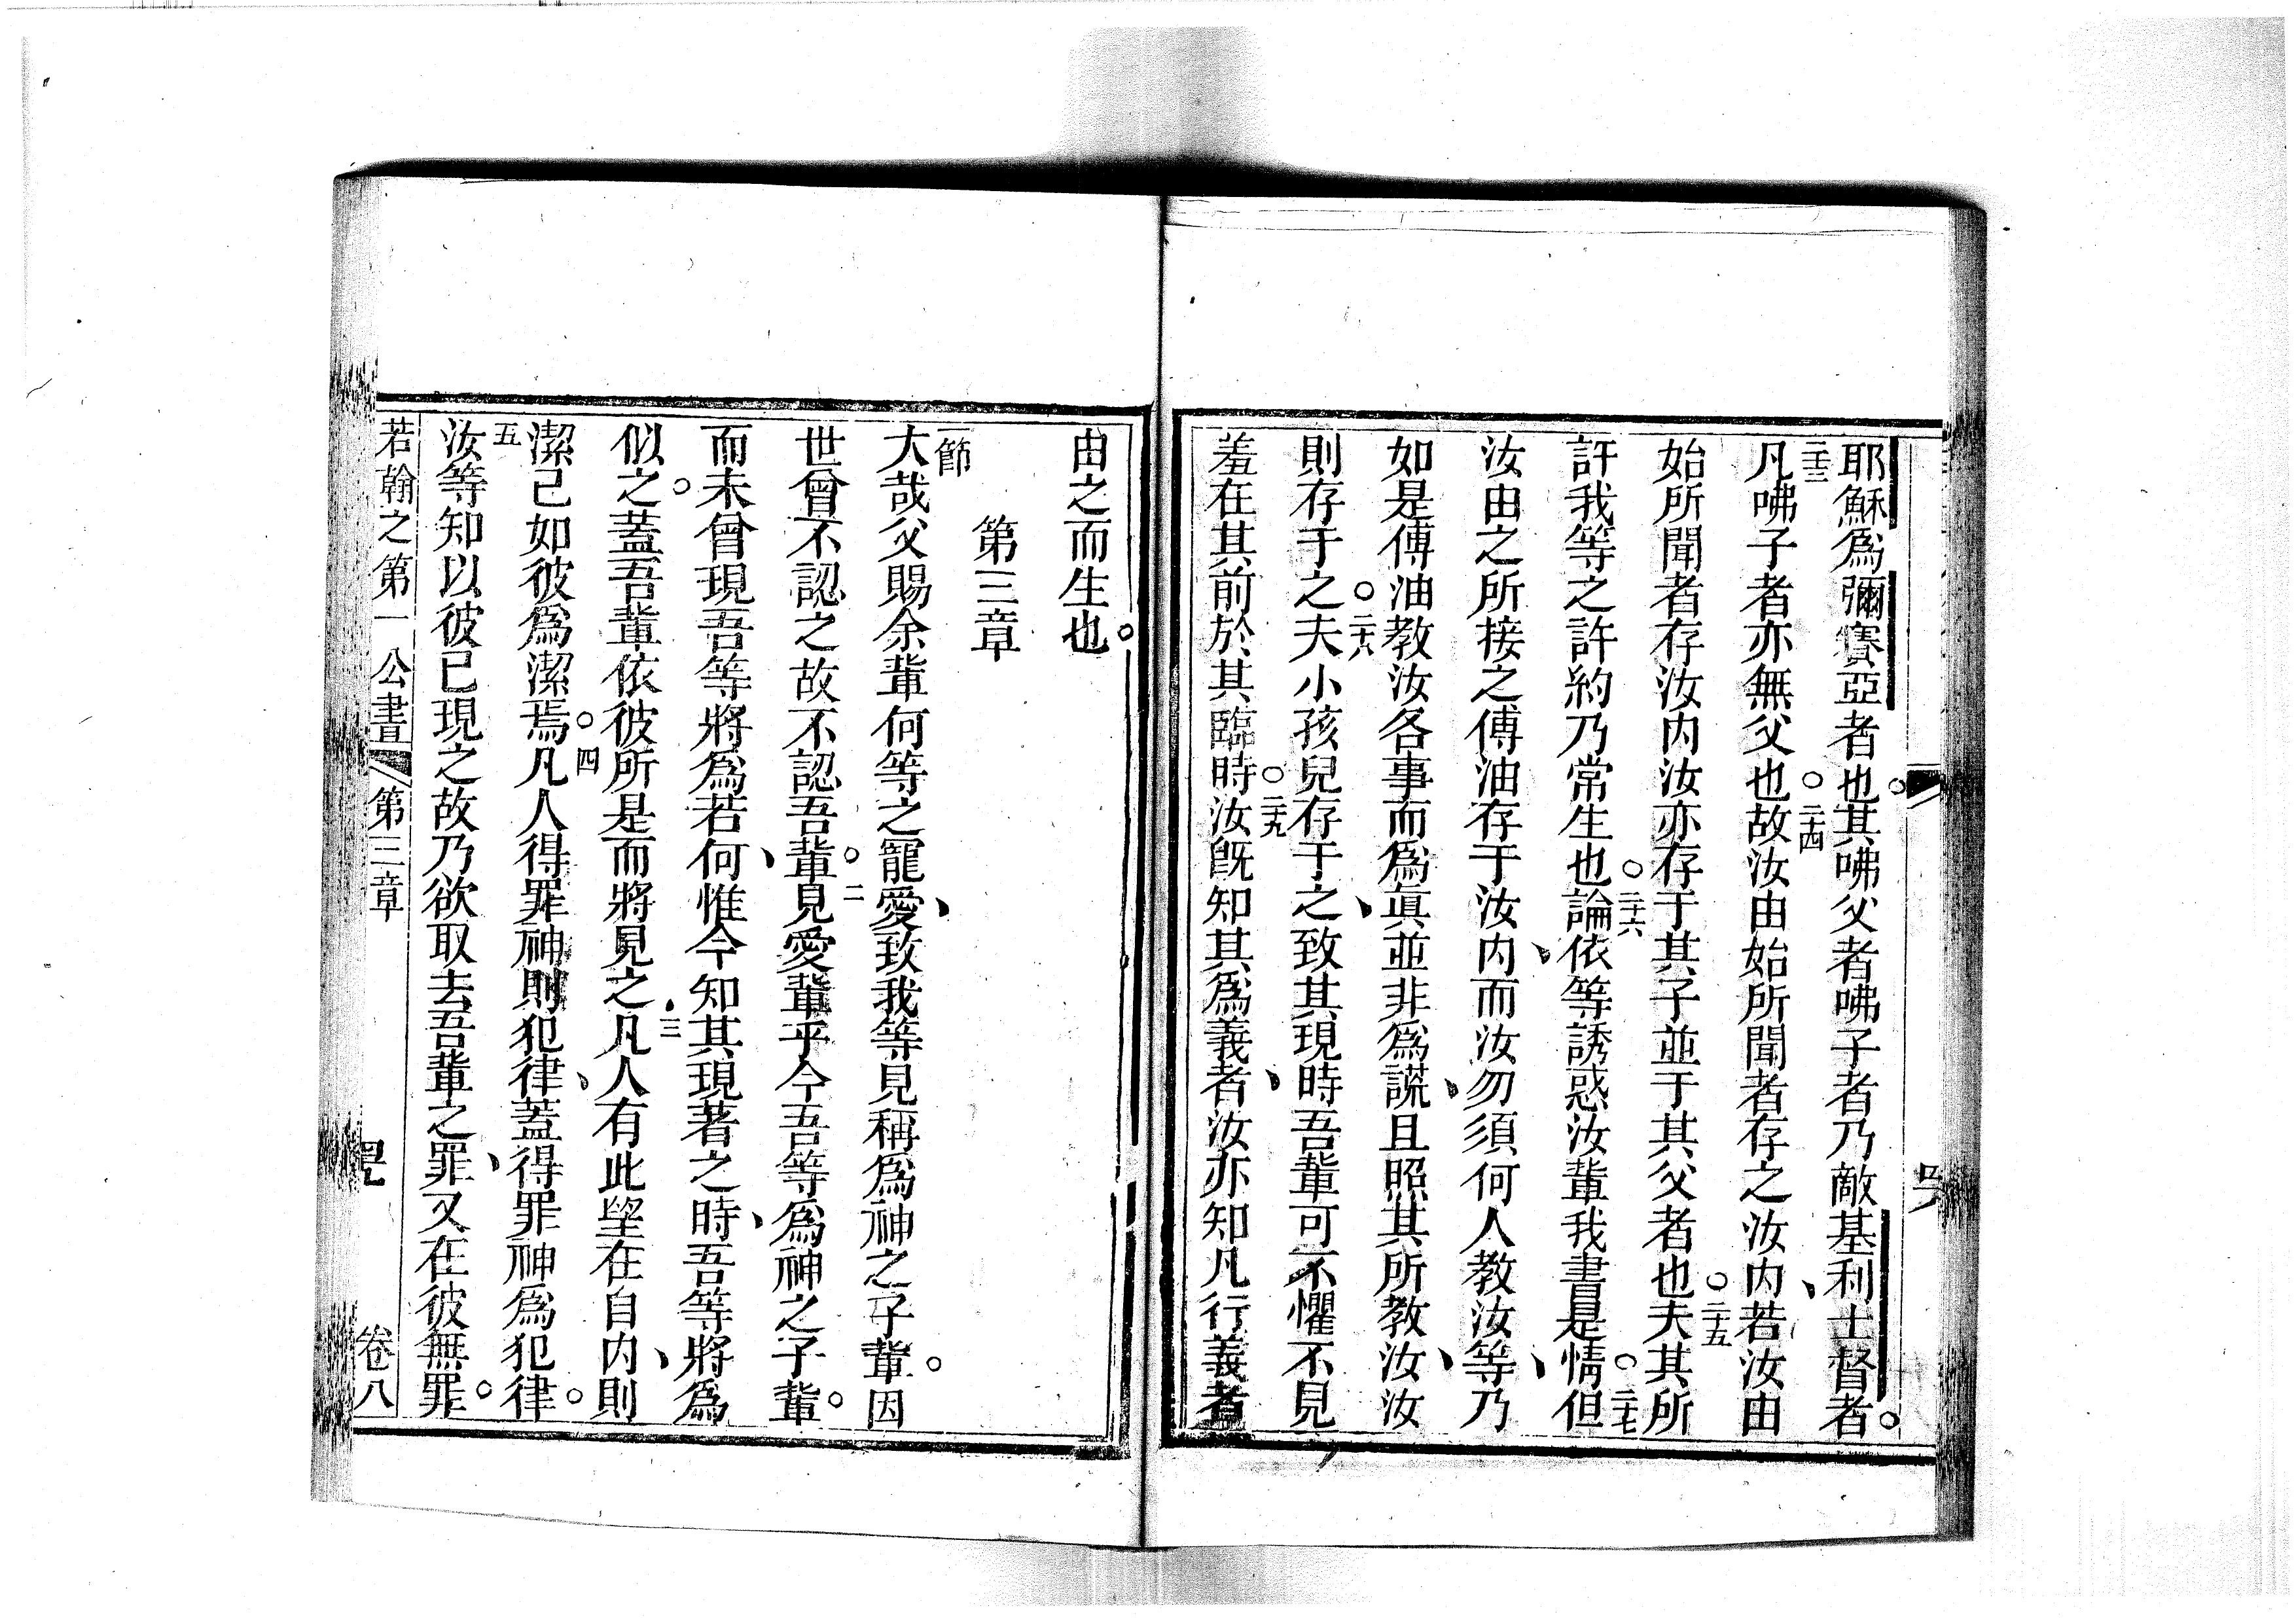 耶穌爲彌賽亞者也。其咈父者咈子者乃敵基利士督者。
二十三凡咈子者亦無父也。二十四故汝由始所聞者存之汝内、若汝由
始所聞者存汝内汝亦存于其子並于其父者也。二十五夫其所
許我等之許約乃常生也。二十六論依等誘惑汝輩我書是情。二十七但
汝由之所接之傅油存于汝内、而汝勿須何人教汝等、乃
如是傅油教汝各事而爲眞並非爲謊、且照其所教汝、汝
則存于之。二十八夫小孩兒存于之、致其現時吾輩可不懼不見
羞在其前於其臨時。二十九汝既知其爲義者、汝亦知凡行義者
由之而生也。
第三章
一節大哉父賜余輩何等之寵愛、致我等見稱爲神之子輩。因
世曾不認之故不認吾輩。二見愛輩乎今吾等爲神之子輩。
而未曾現吾等將爲若何、惟今知其現著之時、吾等將爲
似之。蓋吾輩依彼所是而將見之、三凡人有此望在自内、則
潔己如彼爲潔焉。四凡人得罪神則犯律、蓋得罪神爲犯律。
五汝等知以彼已現之故乃欲取去吾輩之罪、又在彼無罪。
若翰之第一公書 第三章 卷八